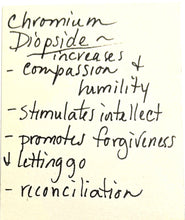 Chromium
Diopside ~
increases
- compassion &
humility
- stimulates intellect
- promotes forgiveness
& letting go
- reconciliation